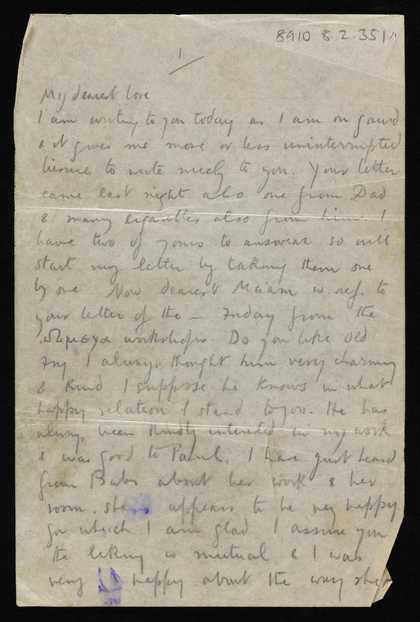 8910 8.2.351/1
1
My dearest love
I am writing to you today as I am on guard
& it gives me more or less uninterrupted
liesure to write nicely to you. Your letter
came last night also one from Dad
& many cigarettes also from him. I
have two of yours to answear so will
start my letter by taking them one
by one Now dearest Maiam w. ref. to
your letter of the — Friday from the
workshops Do you like old
Fry I always thought him very charming
& kind I suppose he knows in what
happy relation I stand to you. He has
always been kindly intereted in my work
& was good to Paul. I have just heard
from Babs about her work & her
room. she appears to be very happy
for which I am glad I assure you
the liking is mutual & I was
very happy about the way she